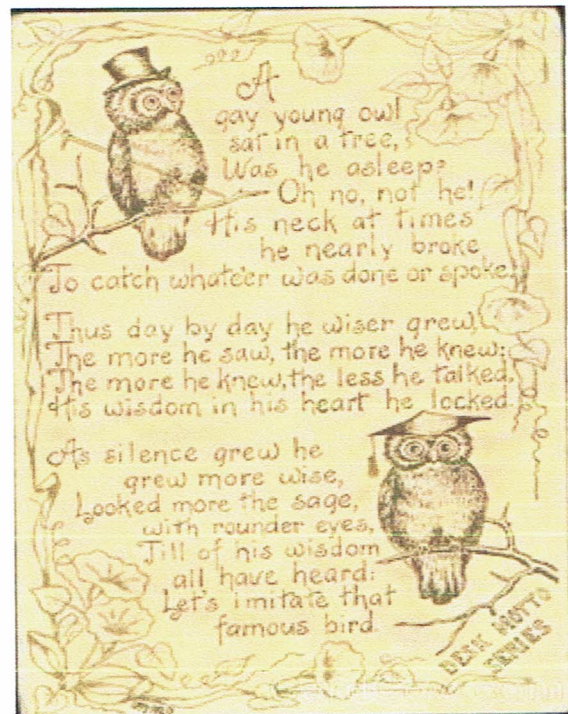 A
gay young owl
sat in a tree,
Was he asleep?
Oh no, not he!
His neck at times
he nearly broke
To catch whate'er was done or spoke.
Thus day by day he wiser grew,
The more he saw, the more he knew;
The more he knew, the less he talked,
His wisdom in his heart he locked.
As silence grew he
grew more wise,
Looked more the sage,
with rounder eyes,
Till of his wisdom
all have heard:
Let's imitate that
famous bird.
DESK MOTTO
SERIES